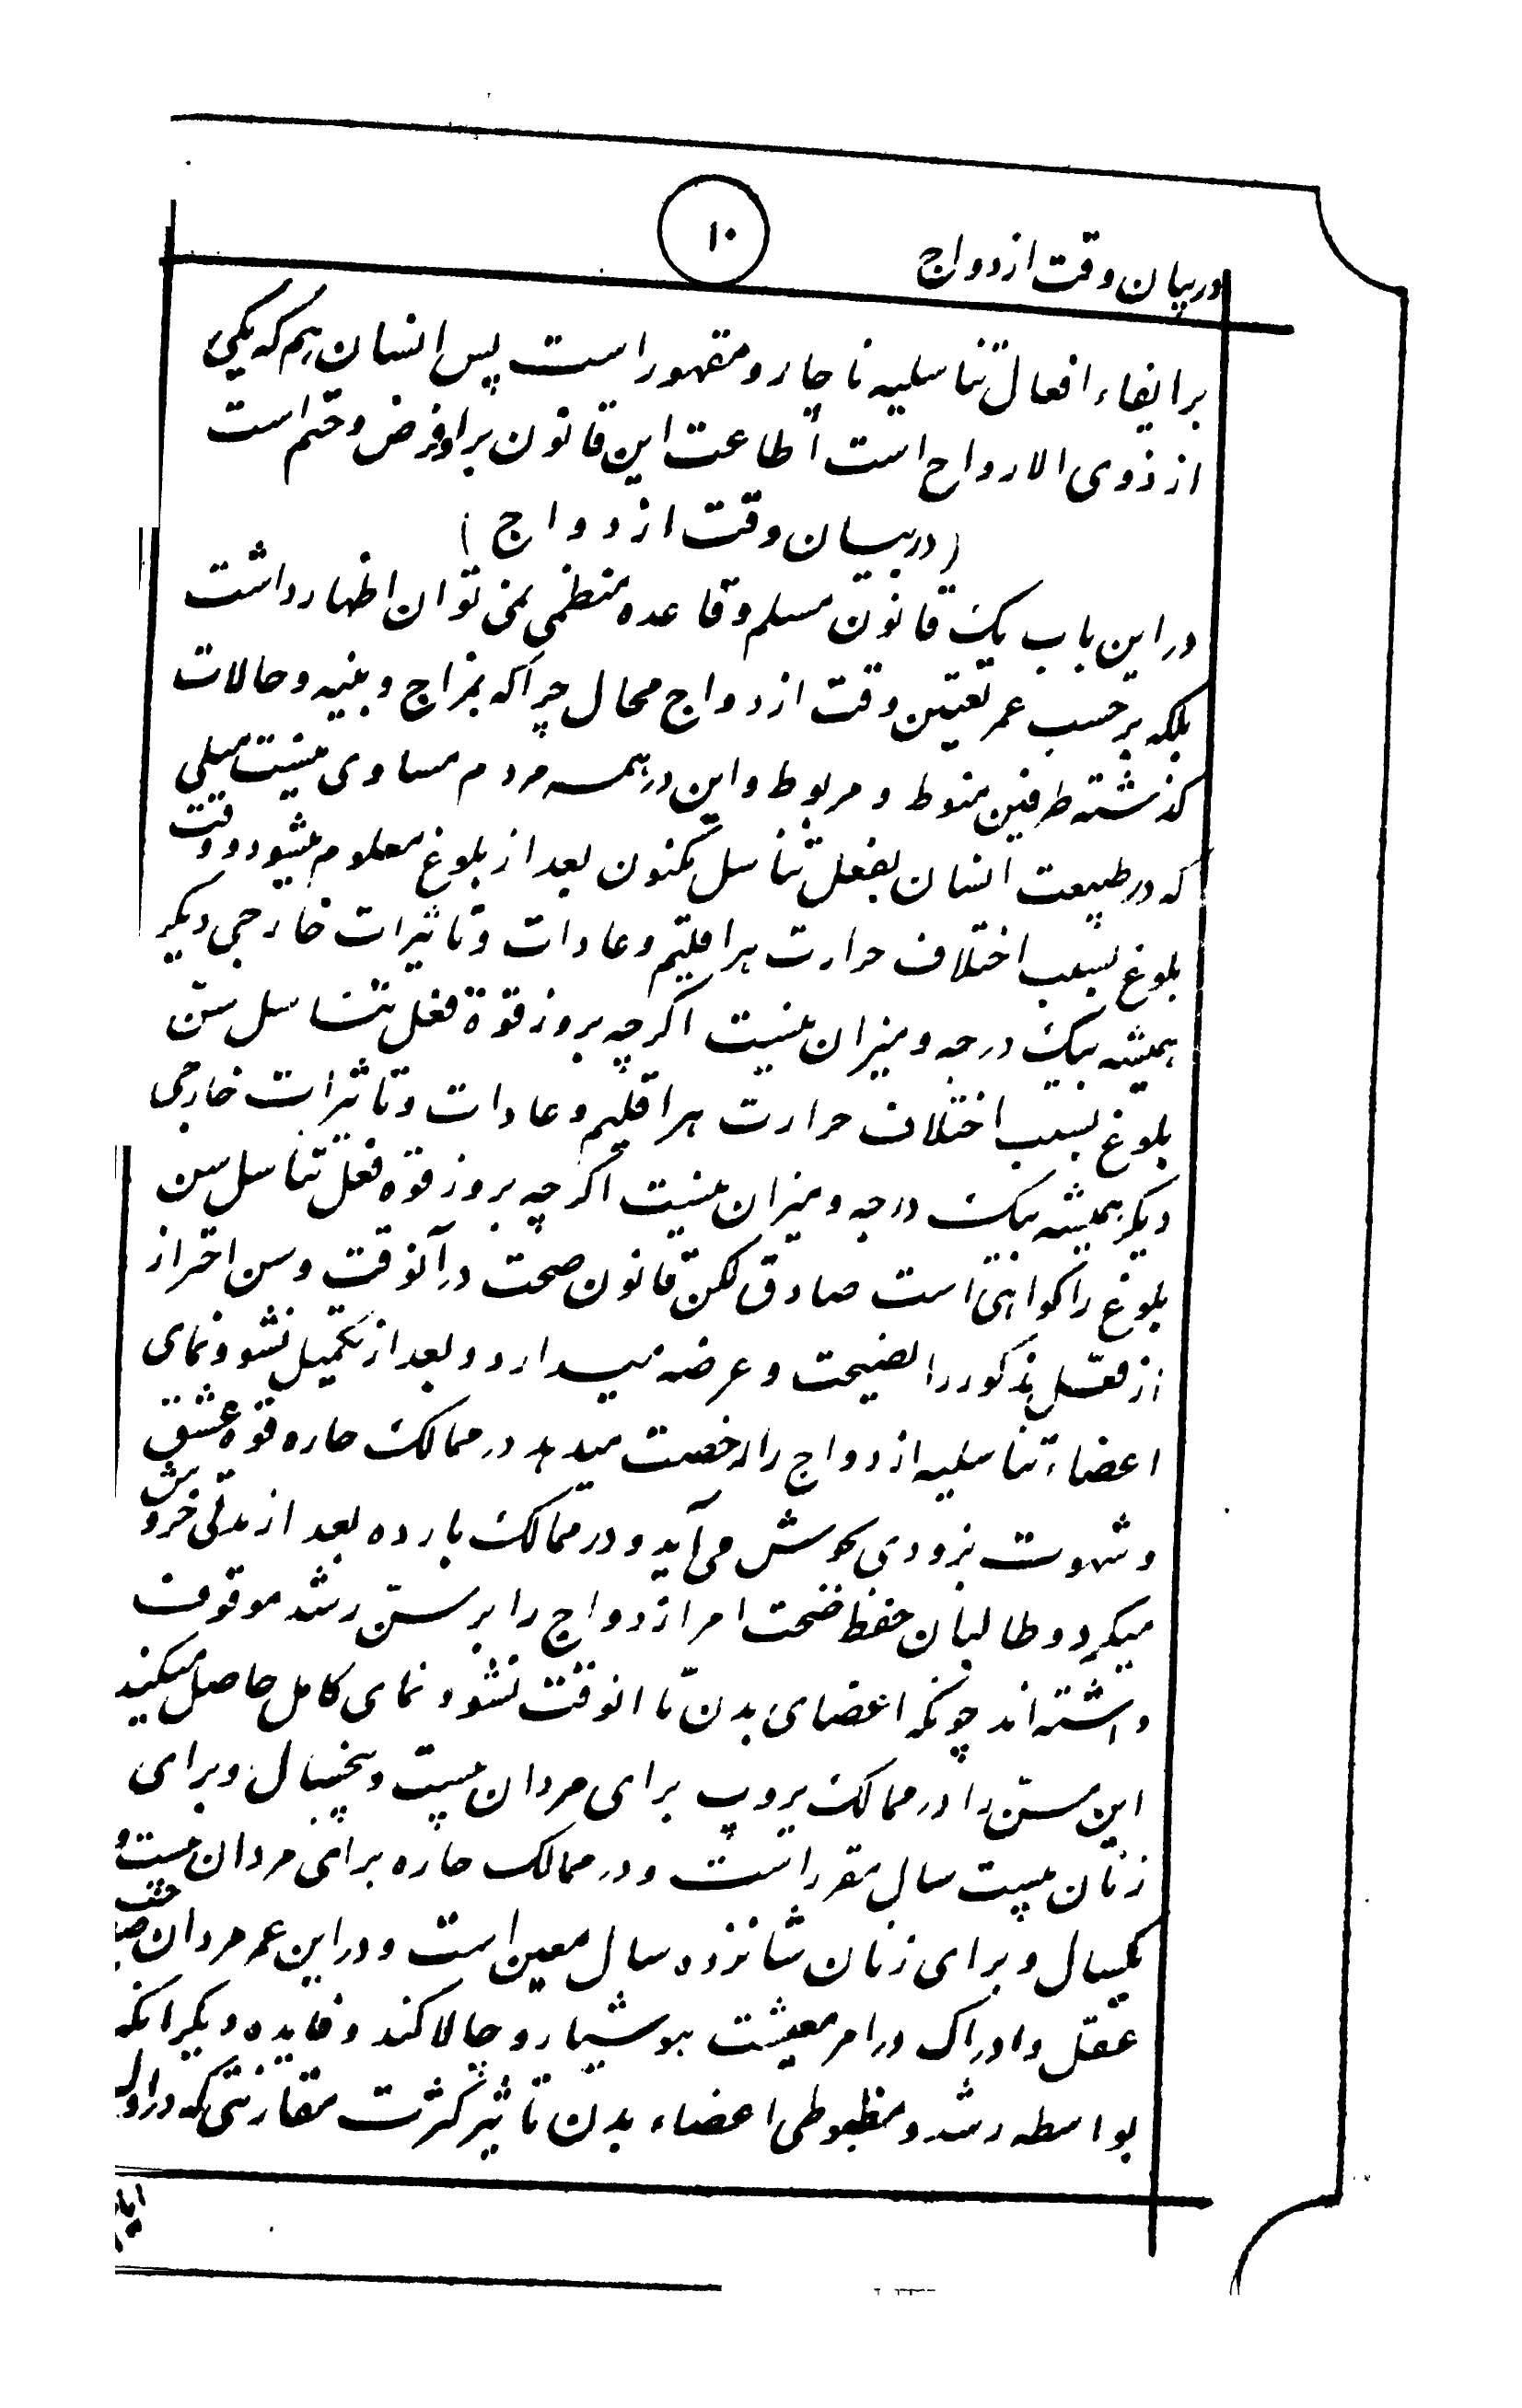 در بیان وقت ازدواج
۱۰
بر ایفاء افعال تناسلیه ناچار و مقهور است پس انسان هم که یکی
از ذوی الارواح است اطاعت این قانون بر او فرض و حتم است
(در بیان وقت ازدواج)
در این باب یک قانون مسلم و قاعده منظمی نمی توان اظهار داشت
بلکه بر حسب عمر تعیین وقت ازدواج محال چرا که بمزاج و بنیه و حالات
گذشته طرفین منوط و مربوط و این در همه مردم مساوی نیست میلی
که در طبیعت انسان بفعل تناسل مکنون بعد از بلوغ معلوم میشود و وقت
بلوغ بسبب اختلاف حرارت هر اقلیم و عادات و تاثیرات خارجی دیگر
همیشه بیک درجه و میزان نیست اگرچه بروز قوة فعل تناسل سن
بلوغ بسبب اختلاف حرارت هر اقلیم و عادات و تاثیرات خارجی
دیگر همیشه بیک درجه و میزان نیست اگرچه بروز قوه فعل تناسل سن
بلوغ را گواهی است صادق لکن قانون صحت در آنوقت و سن احتراز
از فعل مذکور را نصیحت و عرضه میدارد و بعد از تکمیل نشو و نمای
اعضاء تناسلیه ازدواج را رخصت میدهد در ممالک حاره قوه عشق
و شهوت بزودی بجوش می آید و در ممالک بارده بعد از مدتی خروش
میکرد و طالبان حفظ صحت امر ازدواج را بر سن رشد موقوف
داشته اند چونکه اعضای بدن تا انوقت نشو و نمای کامل حاصل میکند
این سن را در ممالک یروپ برای مردان بیست و پنجسال و برای
زنان بیست سال مقرر است و در ممالک حاره برای مردان بیست و
یکسال و برای زنان شانزده سال معین است و در این عمر مردان صاحب
عقل و ادراک در امر معیشت هوشیار و چالاکند و فایده دیگر انکه
بواسطه رشد و مظبوطی اعضاء بدن تاثیر کثرت مقارنتی که در اول